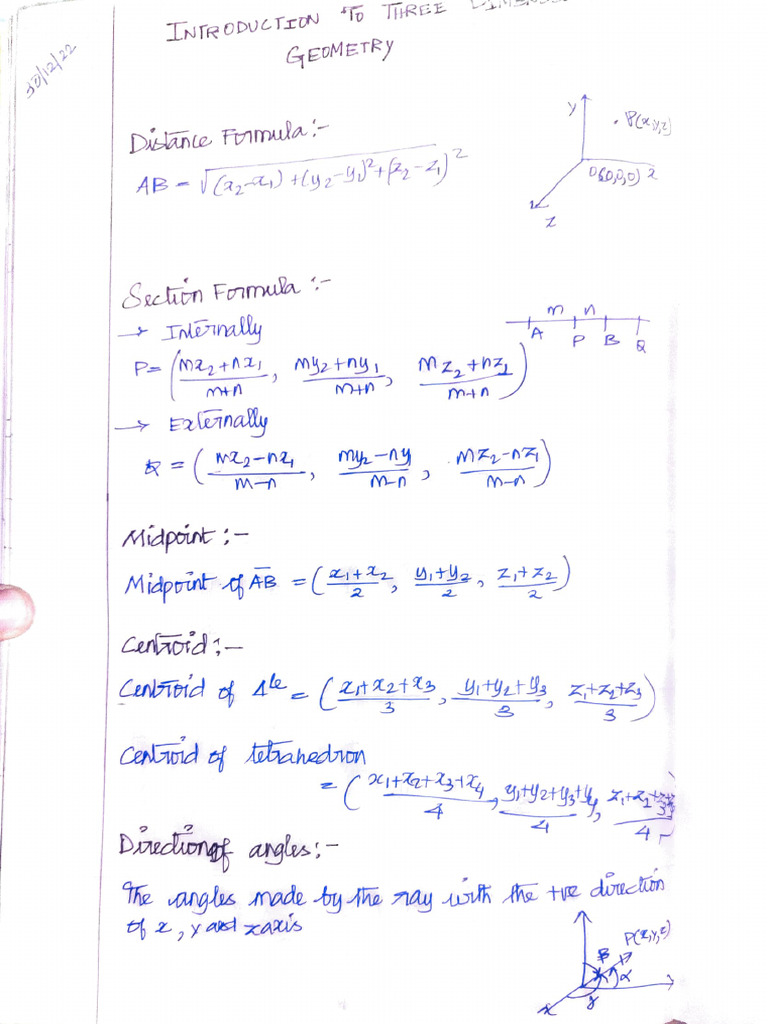 30/12/22
INTRODUCTION TO THREE
GEOMETRY
Distance Formula:-
AB = √(x₂-x₁)+(y₂-y₁)²+(z₂-z₁)²
Y
P(x,y,z)
O(0,0,0) x
z
Section Formula:-
→ Internally
m n
A P B Q
P = (mx₂+nx₁/m+n, my₂+ny₁/m+n, mz₂+nz₁/m+n)
→ Externally
Q = (mx₂-nx₁/m-n, my₂-ny₁/m-n, mz₂-nz₁/m-n)
Midpoint:-
Midpoint of A̅B̅ = (x₁+x₂/2, y₁+y₂/2, z₁+z₂/2)
Centroid:-
Centroid of Δle = (x₁+x₂+x₃/3, y₁+y₂+y₃/3, z₁+z₂+z₃/3)
Centroid of tetrahedron
= (x₁+x₂+x₃+x₄/4, y₁+y₂+y₃+y₄/4, z₁+z₂+z₃/4
Direction of angles:-
The angles made by the ray with the +ve direction
of x, y and z axis
P(x,y,z)
B α
x y